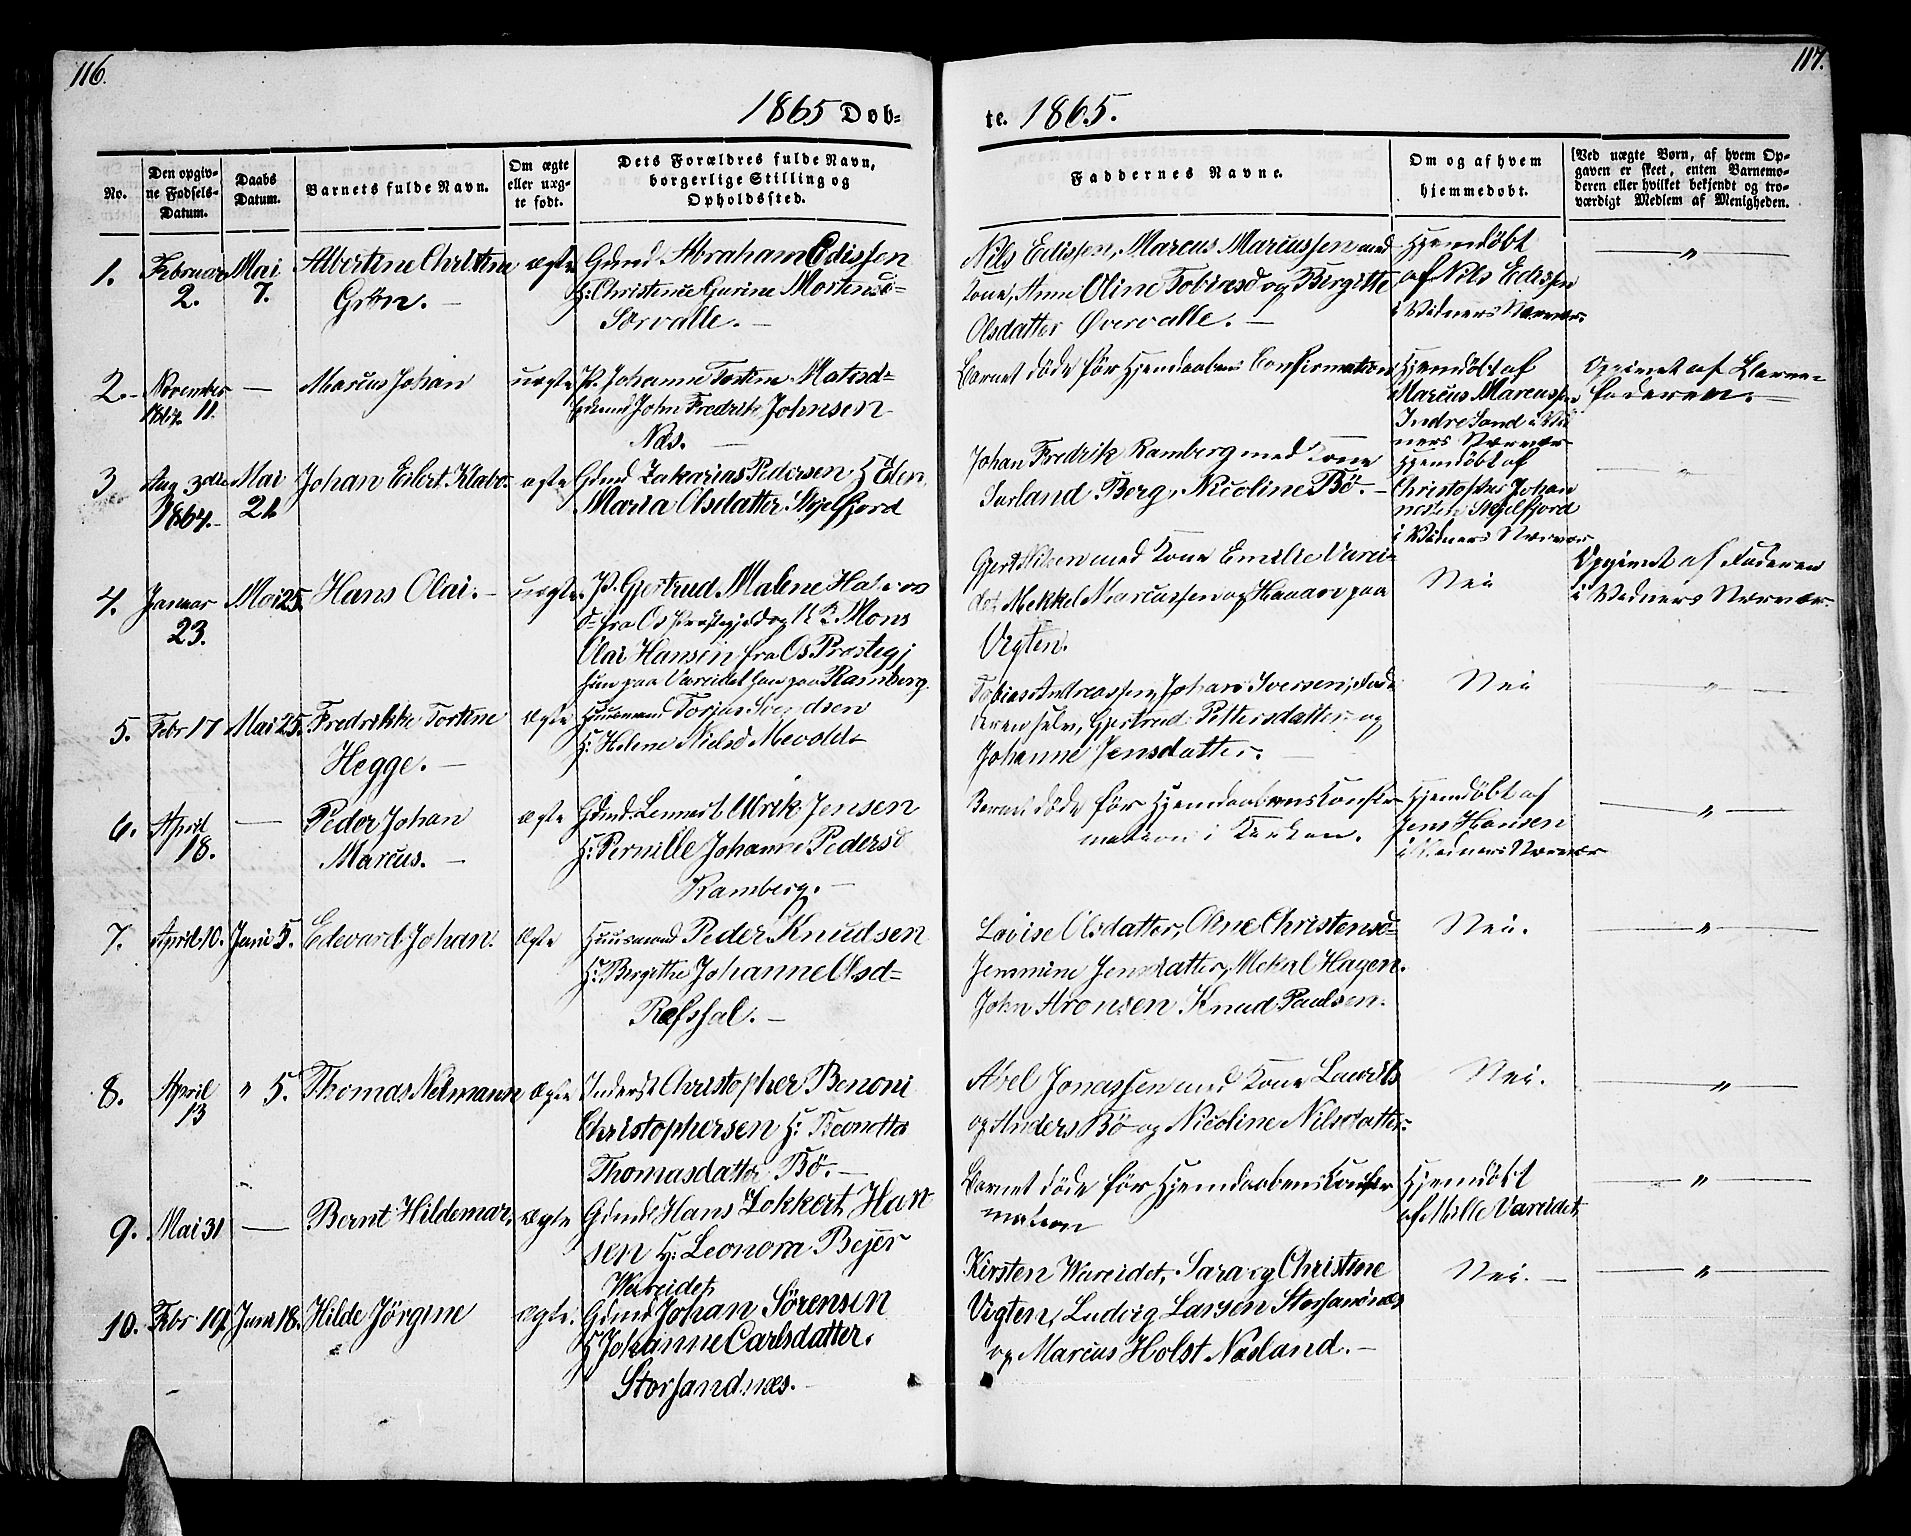 116.
117.
1865 Døb=
te. 1865.
No.
Den opgiv-
ne Fødsels-
Datum.
Daabs
Datum.
Barnets fulde Navn.
Om ægte
eller uæg-
te født.
Dets Forældres fulde Navn,
borgerlige Stilling og
Opholdssted.
Faddernes Navne.
Om og af hvem
hjemmedøbt.
(Ved uægte Børn, af hvem Op-
gaven er skeet, enten Barnemo-
deren eller hvilket bekjendt og tro-
værdigt Medlem af Menigheden.
1.
Februar
2.
Mai
7.
Albertine Christine
Grön. -
ægte
Gmd Abraham Edissen
H: Christense Gurine Mortensd=
Sørvalle. -
Nils Edissen, Marcus Marcussen med
Kone, Anne Oline Tobiasd og Bergitte
Olsdatter Øvervalle. -
Hjemdöbt
af Nils Edissen
i Vidners Nærvær.
- " -
2.
November
1864. 11.
-
Marcus Johan
uægte
P. Johanne Tortine Matisd=
John Fredrik Johnsen
Næs. -
Barnet döde før Hjemdaabens Confirmation
Hjemdöbt af
Marcus Marcussen
Indresand i Vid
ners Nærvær
Opgivet af Barne-
faderen. -
3
Aug 3die
1864.
Mai
21
Johan Eilert Klabo.
ægte
Gmd Zakarias Pedersen H Elen
Maria Olsdatter Skjelfjord
Johan Fredrik Ramberg med Kone
Berg, Nicoline Bö. -
Hjemdöbt af
Christopher Johan
nesen Skjelfjord
i Vidners Nærvær
- " -
4.
Januar
23.
Mai 25.
Hans Olai. -
uægte.
P. Gjertrud Malene
d- fra Os Præstegjeld og U K Mons
Olai Hansen fra Os Præstegj
hun paa Vareidet han paa Ramberg.
Gjert Nilsen med Kone Emilie Varei=
det Mekkel Marcussen og paa
Vigten.
Nei
Opgivet af Faderen
i Vidners Nærvær.
5.
Febr 17
Mai 25.
Fredrikke Tortine
Hegge. -
Ægte
Huusmand Torjus Svendsen
H: Helene Nielsd Mevold
Tobias Andreassen, Johan Iversen, Fad
deren selv, Gjertrud Pettersdatter og
Johanne Jensdatter.
Nei
"
6.
April
18.
-
Peder Johan
Marcus. -
ægte
Gmd. Lennert Ulrik Jensen
H: Pernille Johanne Pedersd
Ramberg. -
Barnet döde før Hjemdaabens Konfir
mation i Kirken.
Hjemdöbt af
Jens Hansen
i Vidners Nærvær
- " -
7.
April 10.
Juni 5.
Edevard Johan.
Ægte
Huusmand Peder Knudsen
H: Birgithe Johanne Olsd=
Ræfshal. -
Lovise Olsdatter, Oline Christensd
Jemmine Jensdatter, Mekal Hagen.
John Aronsen Knud Paulsen.
Nei.
- " -
8.
April
13
" 5.
Thomas Neumann
Ægte
Inderst Christopher Benoni
Christophersen H:
Thomasdatter Bö. -
Abel Jonassen med Kone Laurits
og Anders Bö og Nicoline Nilsdatter.
Nei.
"
9.
Mai 31
-
Bernt Hildemar.
ægte
Gmd Hans Lokkert Han
sen H: Leonora Bejer
Wareidet.
Barnet döde før Hjemdaabens Konfir
mation
Hjemdöbt
af Mille Vareidet,
- " -
10.
Febr 19
Juni 18.
Hilde Jörgine
ægte.
Gmd Johan Sörensen
H Johanne Carlsdatter.
Storsandnæs. -
Kirsten Wareidet, Sara og Christine
Vigten, Ludvig Larsen Storsandnæs
og Marcus Holst Næsland. -
Nei. -
- " -